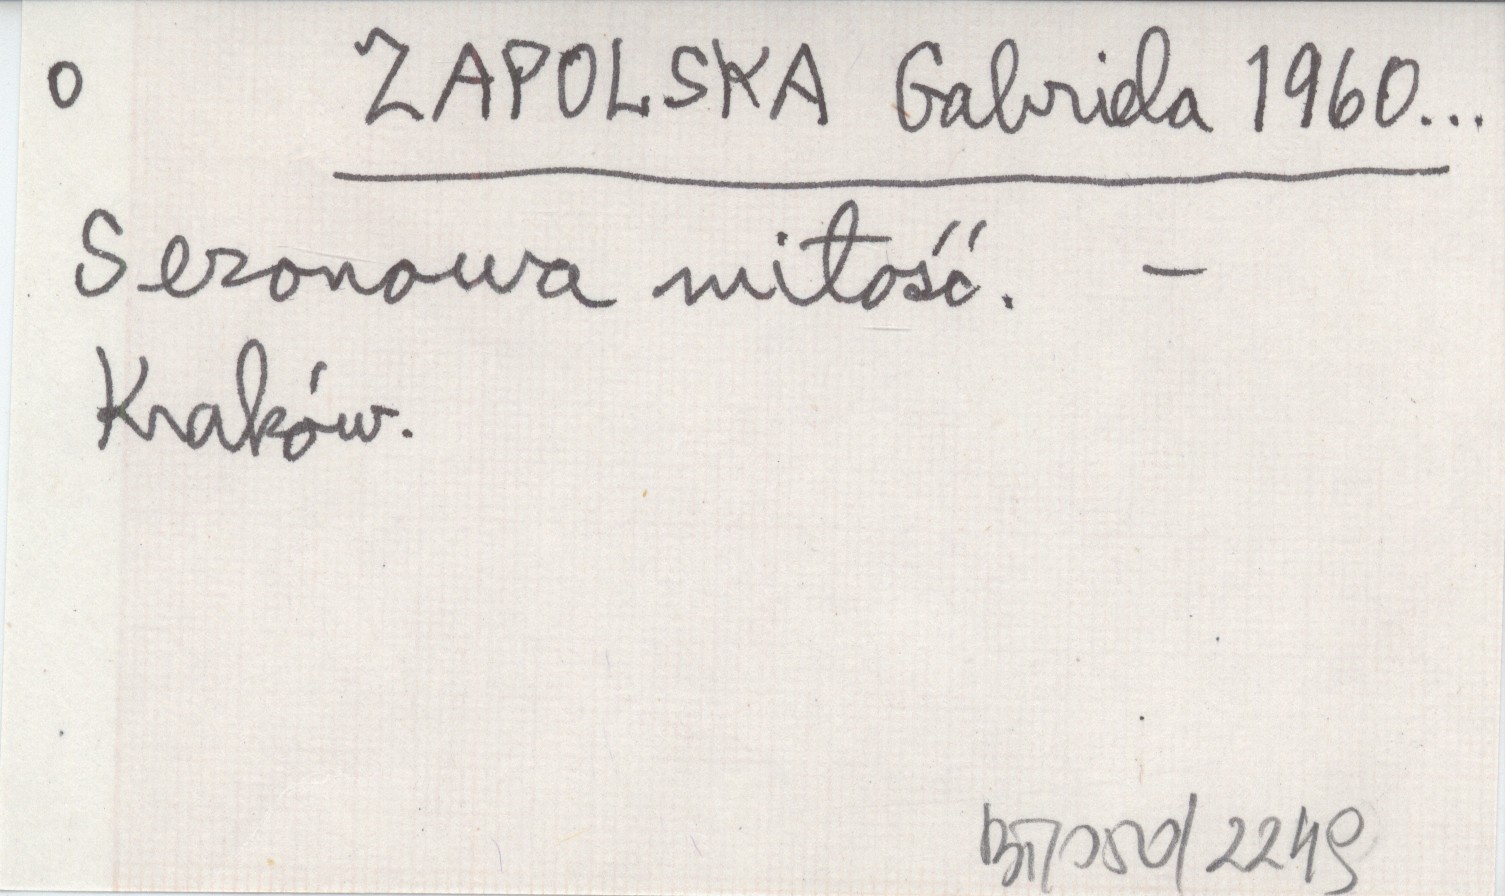 o ZAPOLSKA Gabriela 1960...
Sezonowa miłość. —
Kraków.